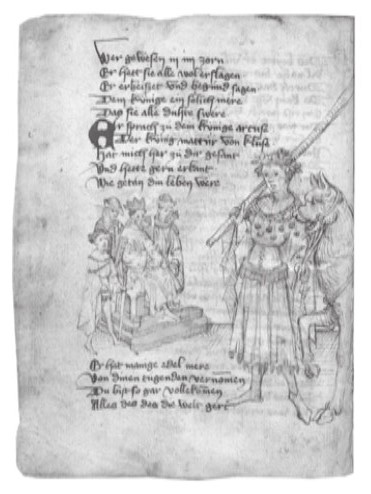 Wer gewesen in im zorn
Er hett sie alle wol erslagen
Er erbeisset vnd begund sagen
Dem kunige ein solich mere
Das sie alle duhte swere
Er sprach zu dem kunige artuse
Der kunig mattur von kluse
Hat mich har zu dir gesant
Vnd hette gern erkant
Wie getan din leben were
Er hat mange edel mere
Von dinen tugenden vernomen
Du bist so gar vollekomen
Alles des das die welt gert